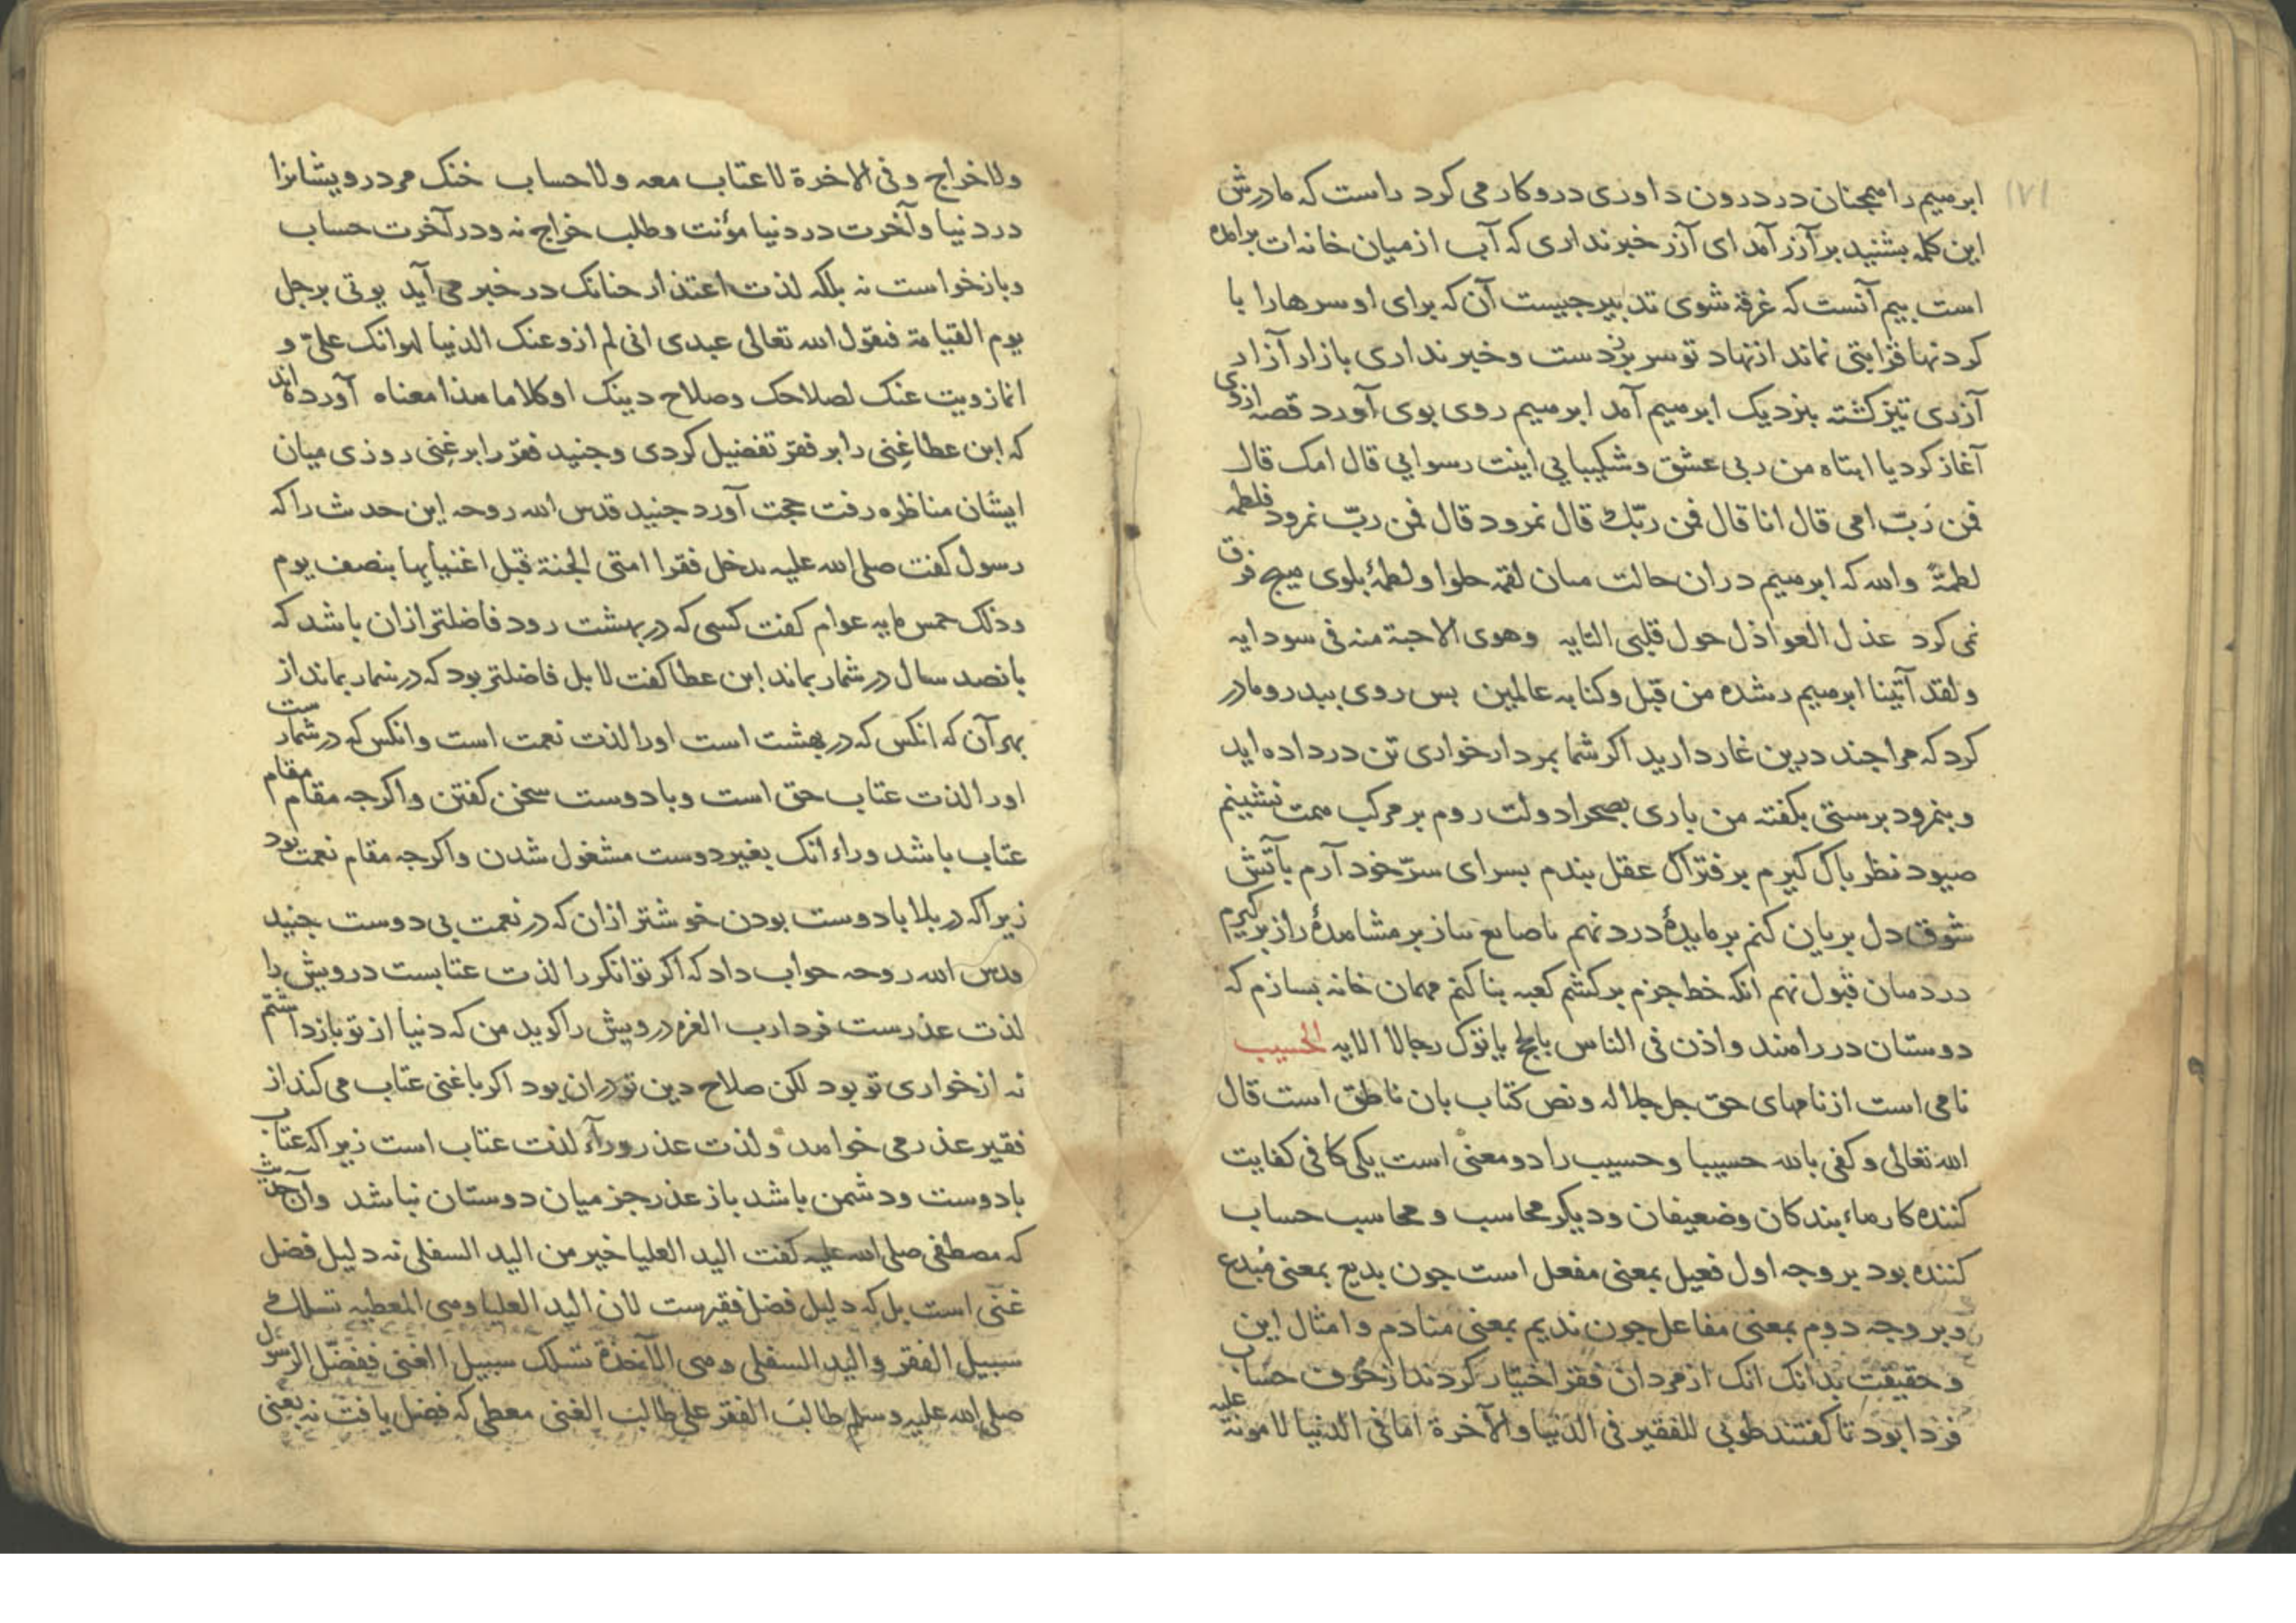 ۱۷۱
ابرهیم را همجنان در درون داوری در و کار می کرد راست که مادرش
این کلمه بشنید بر آزر آمد ای آزر خبر نداری که آب از میان خانه ات برآمده
است بیم آنست که غرقه شوی تدبیر جیست آن که برای او سرها را با
کرد تنها قرابتی نماند از نهاد تو سر بر زدست و خبر نداری بازار آزار
آزری تیز کشته بنزدیک ابرهیم آمد ابرهیم روی بوی آورد قصه ازوی
آغاز کرد یا ابتاه من ربی عشق و شکیبایی اینت رسوایی قال امک قال
فمن ربّ امی قال انا قال فمن ربّک قال نمرود قال فمن ربّ نمرود فلطمه
لطمةً والله که ابرهیم دران حالت میان لقمه حلوا و لطمهٔ بلوی هیج فرق
نمی کرد عذل العواذل حول قلبی التایه وهوی الاحبة منه فی سودایه
ولقد آتینا ابرهیم رشده من قبل وکنا به عالمین بس روی ببدر و مادر
کرد که مرا جند درین غار دارید اکر شما بمردار خواری تن در داده اید
و بنمرود برستی بکفته من باری بصحرا دولت روم بر مرکب همت نشینم
صیود نظر باک کیرم بر فتراک عقل بندم بسرای سرّ خود آرم بآتش
شوق دل بریان کنم بر مایدهٔ درد نهم با صانع ساز بر مشاهدهٔ راز برکیرم
در دهان قبول نهم انکه خط جزم برکشم کعبه بنا کنم مهمان خانه بسازم که
دوستان در راهند واذن فی الناس بالحج یاتوک رجالا الایه الحسیب
نامی است از نامهای حق جل جلاله و نص کتاب بان ناطق است قال
الله تعالی وکفی بالله حسیبا و حسیب را دو معنی است یکی کافی کفایت
کننده کارهاء بندکان و ضعیفان و دیکر محاسب و محاسب حساب
کننده بود بر وجه اول فعیل بمعنی مفعل است جون بدیع بمعنی مُبدع
و بر وجه دوم بمعنی مفاعل جون ندیم بمعنی منادم و امثال این
و حقیقت بدانک انک از مردان فقر اختیار کردند از خوف حساب
فردا بود تا کفتند طوبی للفقیر فی الدنیا والآخرة اما فی الدنیا لا مونة علیه
ولا خراج وفی الاخرة لا عتاب معه ولا حساب خنک مر درویشانرا
در دنیا و آخرت در دنیا مؤنت و طلب خراج نه و در آخرت حساب
و بازخواست نه بلکه لذت اعتذار جنانک در خبر می آید یوتی برجل
یوم القیامة فیقول الله تعالی عبدی انی لم ازو عنک الدنیا لهوانک علیّ و
انما زویت عنک لصلاحک وصلاح دینک او کلاما هذا معناه آورده اند
که ابن عطا غِنی را بر فقر تفضیل کردی و جنید فقر را بر غِنی روزی میان
ایشان مناظره رفت حجت آورد جنید قدس الله روحه این حدیث را که
رسول کفت صلی الله علیه یدخل فقرا امتی الجنة قبل اغنیایها بنصف یوم
وذلک خمس مایه عوام کفت کسی که در بهشت رود فاضلتر ازان باشد که
بانصد سال در شمار بماند ابن عطا کفت لا بل فاضلتر بود که در شمار بماند از
بهر آن که انکس که در بهشت است اورا لذت نعمت است و انکس که در شمارست
اورا لذت عتاب حق است و با دوست سخن کفتن و اکرجه مقام مقام
عتاب باشد وراء انک بغیر دوست مشغول شدن و اکرجه مقام نعمت بود
زیرا که در بلا با دوست بودن خوشتر ازان که در نعمت بی دوست جنید
قدس الله روحه جواب داد که اکر توانکر را لذت عتابست درویش را
لذت عذرست فردا رب العزه درویش را کوید من که دنیا از تو بازداشتم
نه از خواری تو بود لکن صلاح دین تو دران بود اکر با غنی عتاب می کند از
فقیر عذر می خواهد و لذت عذر وراءٓ لذت عتاب است زیرا که عتاب
با دوست و دشمن باشد باز عذر جز میان دوستان نباشد وآن حدیث
که مصطفی صلی الله علیه کفت الید العلیا خیر من الید السفلی نه دلیل فضل
غنی است بل که دلیل فضل فقیرست لان الید العلیا وهی المعطیه تسلک
سبیل الفقر والید السفلی وهی الآخذة تسلک سبیل الغنی ففضّل الرسول
صلی الله علیه وسلم طالب الفقر علی طالب الغنی معطی که فضل یافت نه بغنی